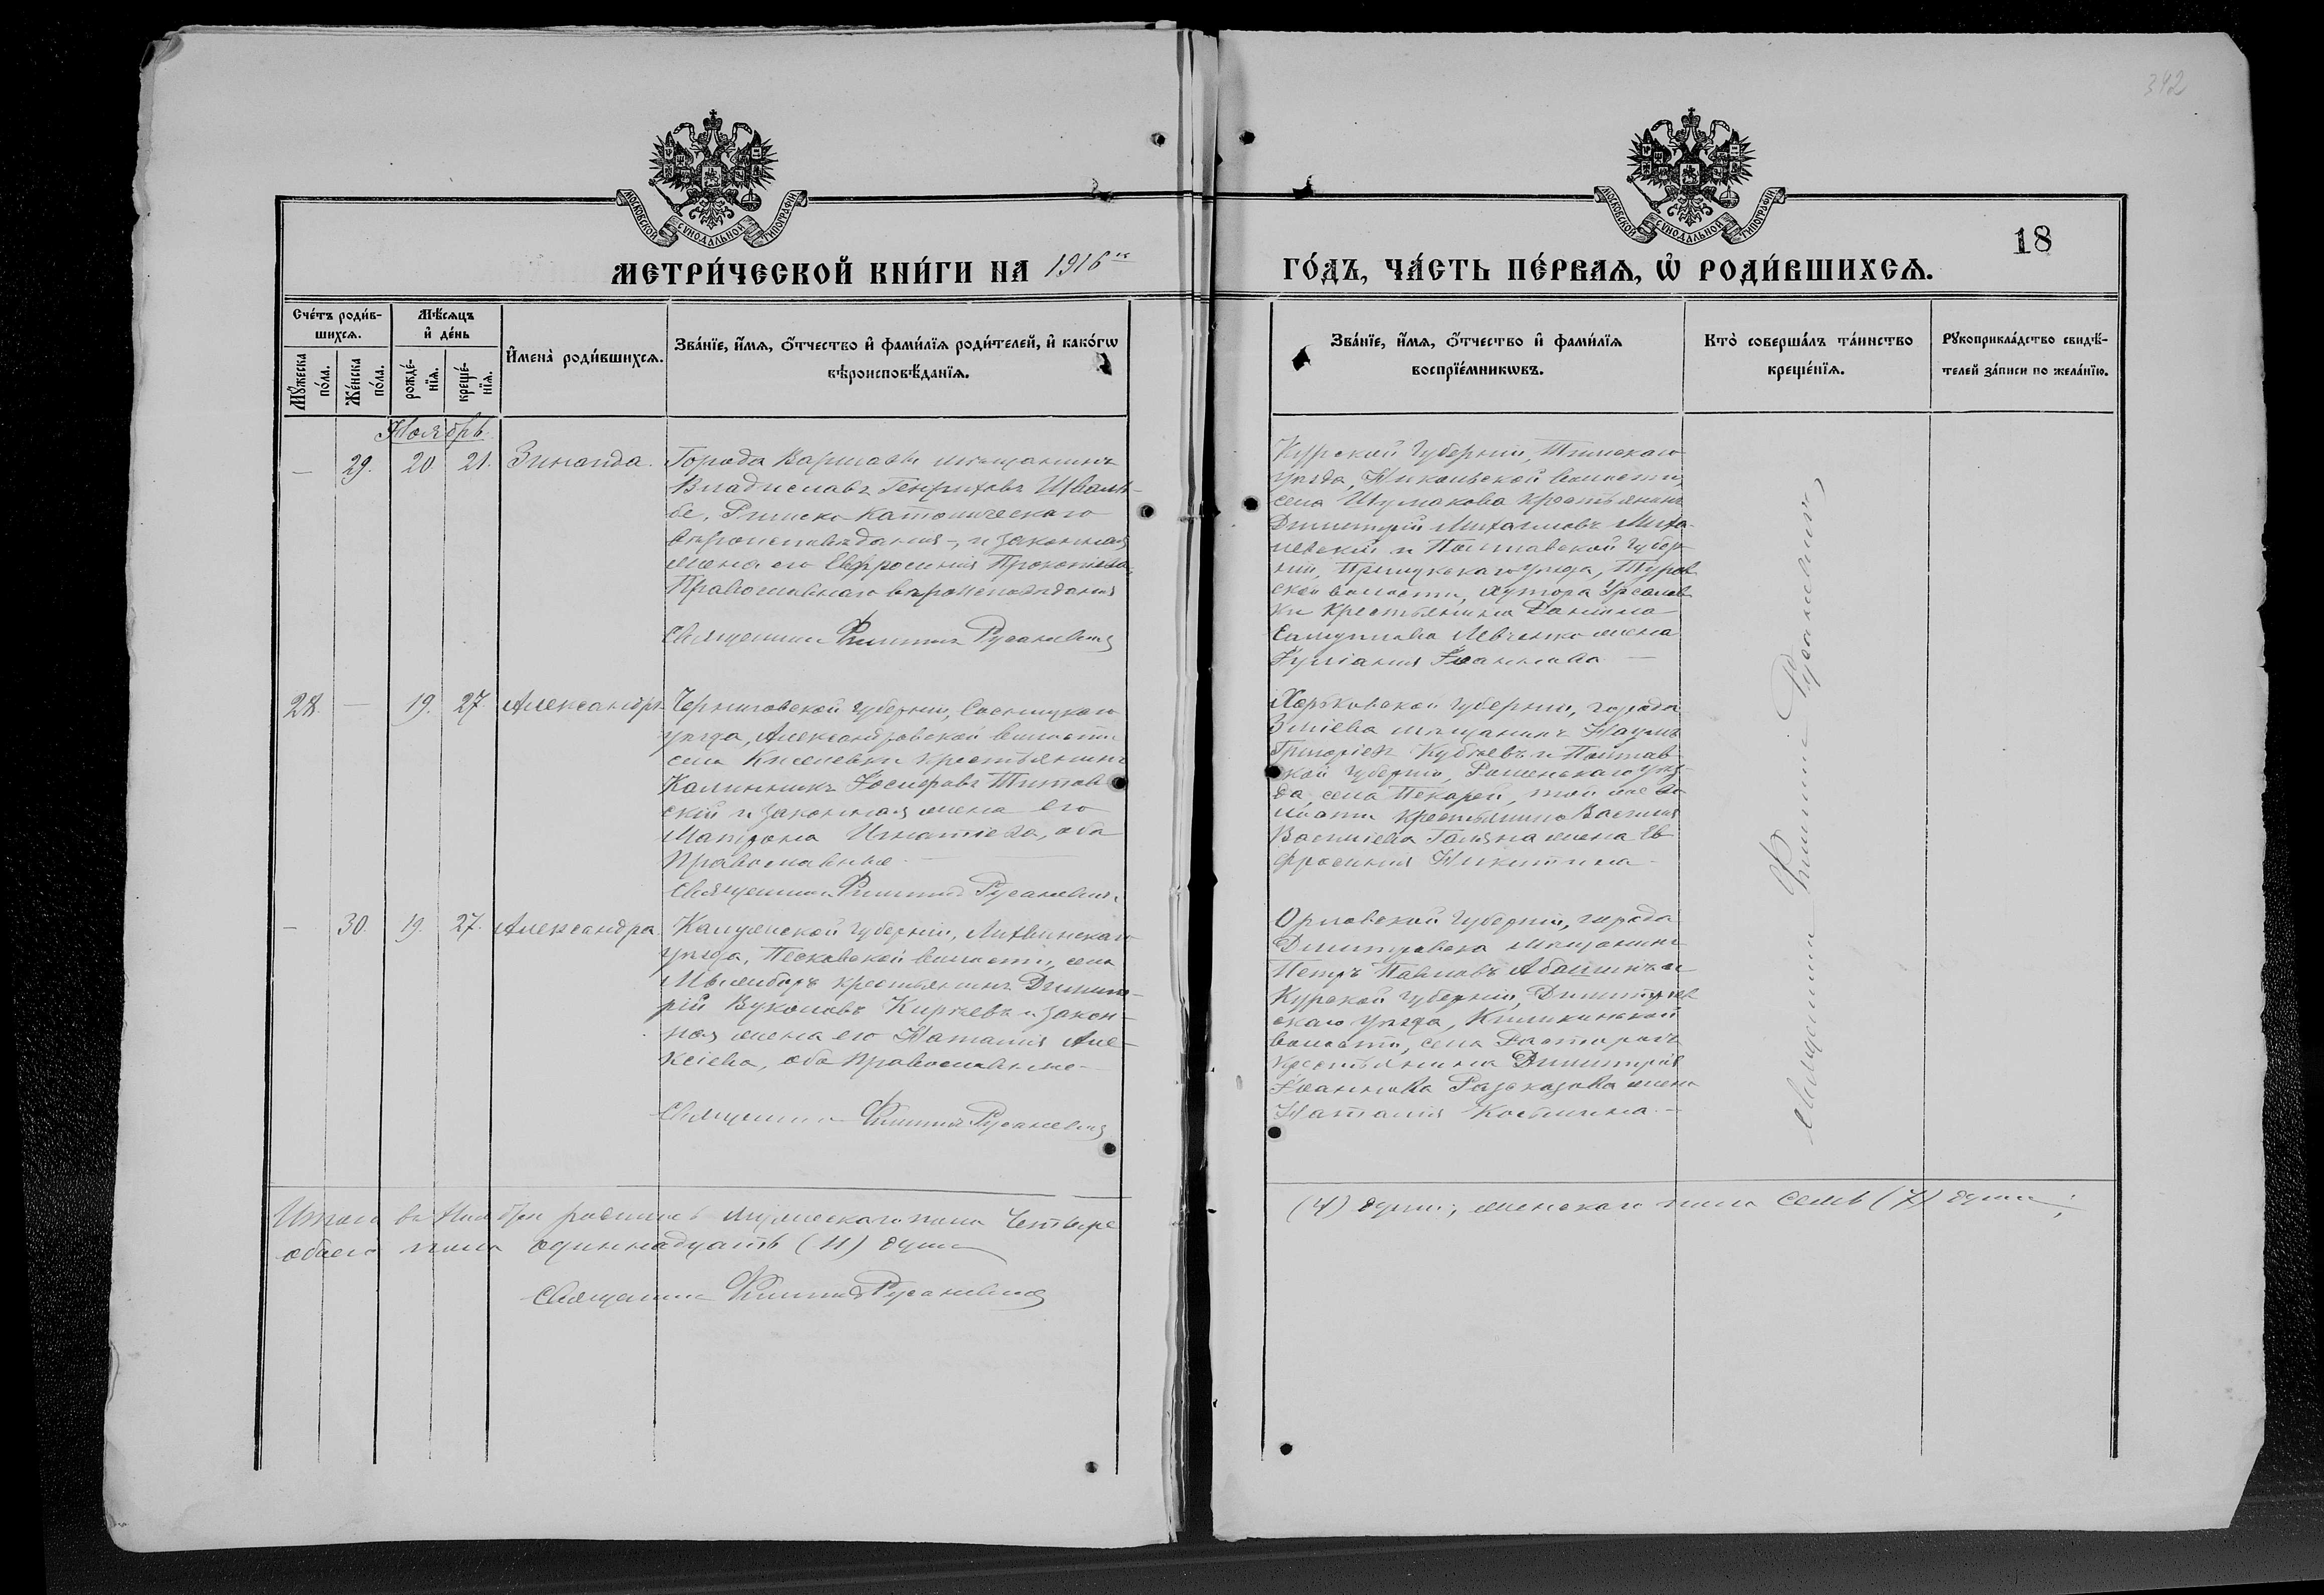 342
МОСКОВСКОЙ СУНОДАЛЬНОЙ ТИПОГРАФІИ
МОСКОВСКОЙ СУНОДАЛЬНОЙ ТИПОГРАФІИ
18
МЕТРИ́ЧЕСКОЙ КНИ́ГИ НА 1916 ГО́ДЪ, ЧА́СТЬ ПЕ́РВАѦ, Ѡ҆ РОДИ́ВШИХСѦ.
Сче́тъ роди́в-
шихсѧ.
Мꙋ́жеска
по́ла.
Же́нска
по́ла.
Мѣ́сѧцъ
и҆ де́нь
рожде́-
нїѧ.
креще́-
нїѧ.
И҆мена̀ роди́вшихсѧ.
Зва́нїе, и҆́мѧ, ѻ҆́тчество и҆ фами́лїѧ роди́телей, и҆ како́гѡ
вѣроисповѣ́данїѧ.
Зва́нїе, и҆́мѧ, ѻ҆́тчество и҆ фами́лїѧ
воспрїе́мникѡвъ.
Кто̀ соверша́лъ та́инство
креще́нїѧ.
Рꙋкоприкла́дство свидѣ́-
телей за́писи по жела́нїю.
Ноябрь
— 29. 20 21. Зинаида.
Города Варшавы мѣщанинъ
Владиславъ Генриховъ Шваль-
бе, Римско-Католическаго
вѣроисповѣданія, и законная
жена его Евфросинія Прокопіева,
Православнаго вѣроисповѣданія
Священникъ Филиппъ Русаневичъ
Курской губерніи, Тимскаго
уѣзда, Никольской волости,
села Шумакова крестьянинъ
Димитрій Михаиловъ Миха-
левскій и Полтавской губер-
ніи, Прилукскаго уѣзда, Туров
ской волости, хутора
крестьянина Даніила
Левченко жена
Іуліанія Іоаннова —
28. — 19. 27. Александръ
Черниговской губерніи, Сосницкаго
уѣзда, Александровской волости
села Киселевки крестьянинъ
Калинникъ Іосифовъ Титов
скій и законная жена его
Матрона Игнатіева, оба
православные. —
Священникъ Филиппъ Русаневичъ
Харьковской губерніи, города
Зміева мѣщанинъ Наумъ
Григоріевъ и Полтав
ской губерніи, Роменскаго уѣз-
да, села Пекарей, той же во
лости крестьянина Василія
Василіева жена Ев
фросинія Никитина —
— 30. 19. 27. Александра
Калужской губерніи, Лихвинскаго
уѣзда, Песковской волости, села
крестьянинъ Димит-
рій Вуколовъ Кирѣевъ и закон-
ная жена его Наталія Але-
ксіева, оба православные —
Священникъ Филиппъ Русаневичъ
Орловской губерніи, города
Дмитровска мѣщанинъ
Петръ Павловъ и
Курской губерніи, Димитріев
скаго уѣзда,
волости, села
крестьянина Димитрія
Іоаннова Разсказова жена
Наталія Косьмина. —
Священникъ Филиппъ Русаневичъ
Итого въ Ноябрѣ родилось мужескаго пола четыре (4) души; женскаго пола семь (7) душъ;
обоего пола одиннадцать (11) душъ
Священникъ Филиппъ Русаневичъ